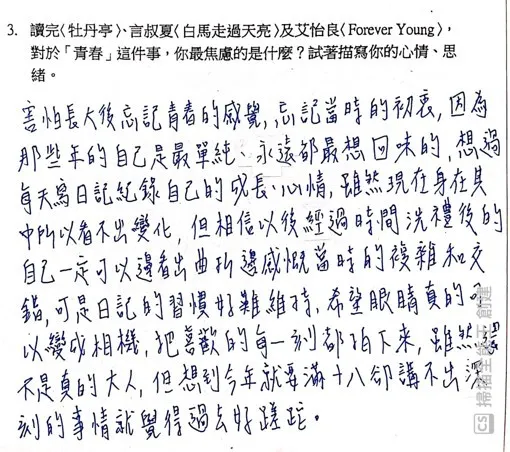 3. 讀完〈牡丹亭〉、言叔夏〈白馬走過天亮〉及艾怡良〈Forever Young〉，
對於「青春」這件事，你最焦慮的是什麼？試著描寫你的心情、思
緒。
害怕長大後忘記青春的感覺，忘記當時的初衷，因為
那些年的自己是最單純、永遠都最想回味的，想過
每天寫日記紀錄自己的成長、心情，雖然現在身在其
中所以看不出變化，但相信以後經過時間洗禮後的
自己一定可以邊看出曲折邊感慨當時的複雜和交
錯，可是日記的習慣好難維持，希望眼睛真的可
以變成相機，把喜歡的每一刻都拍下來，雖然還
不是真的大人，但想到今年就要滿十八卻講不出深
刻的事情就覺得過去好蹉跎。
CS 掃描全能王 創建